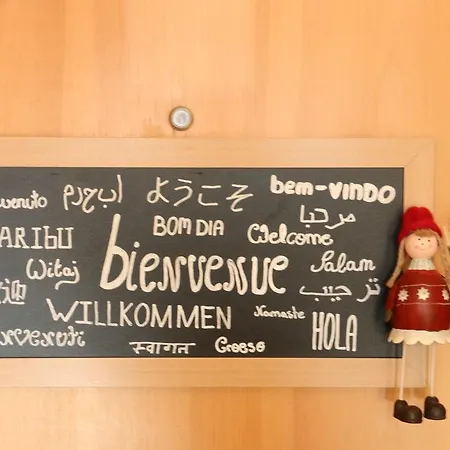 ようこそ
bem-VINDO
BOM DIA
مرحبا
ARIBU
Welcome
Witaj
bienvenue
Salam
ترحيب
WILLKOMMEN
Namaste
HOLA
स्वागत